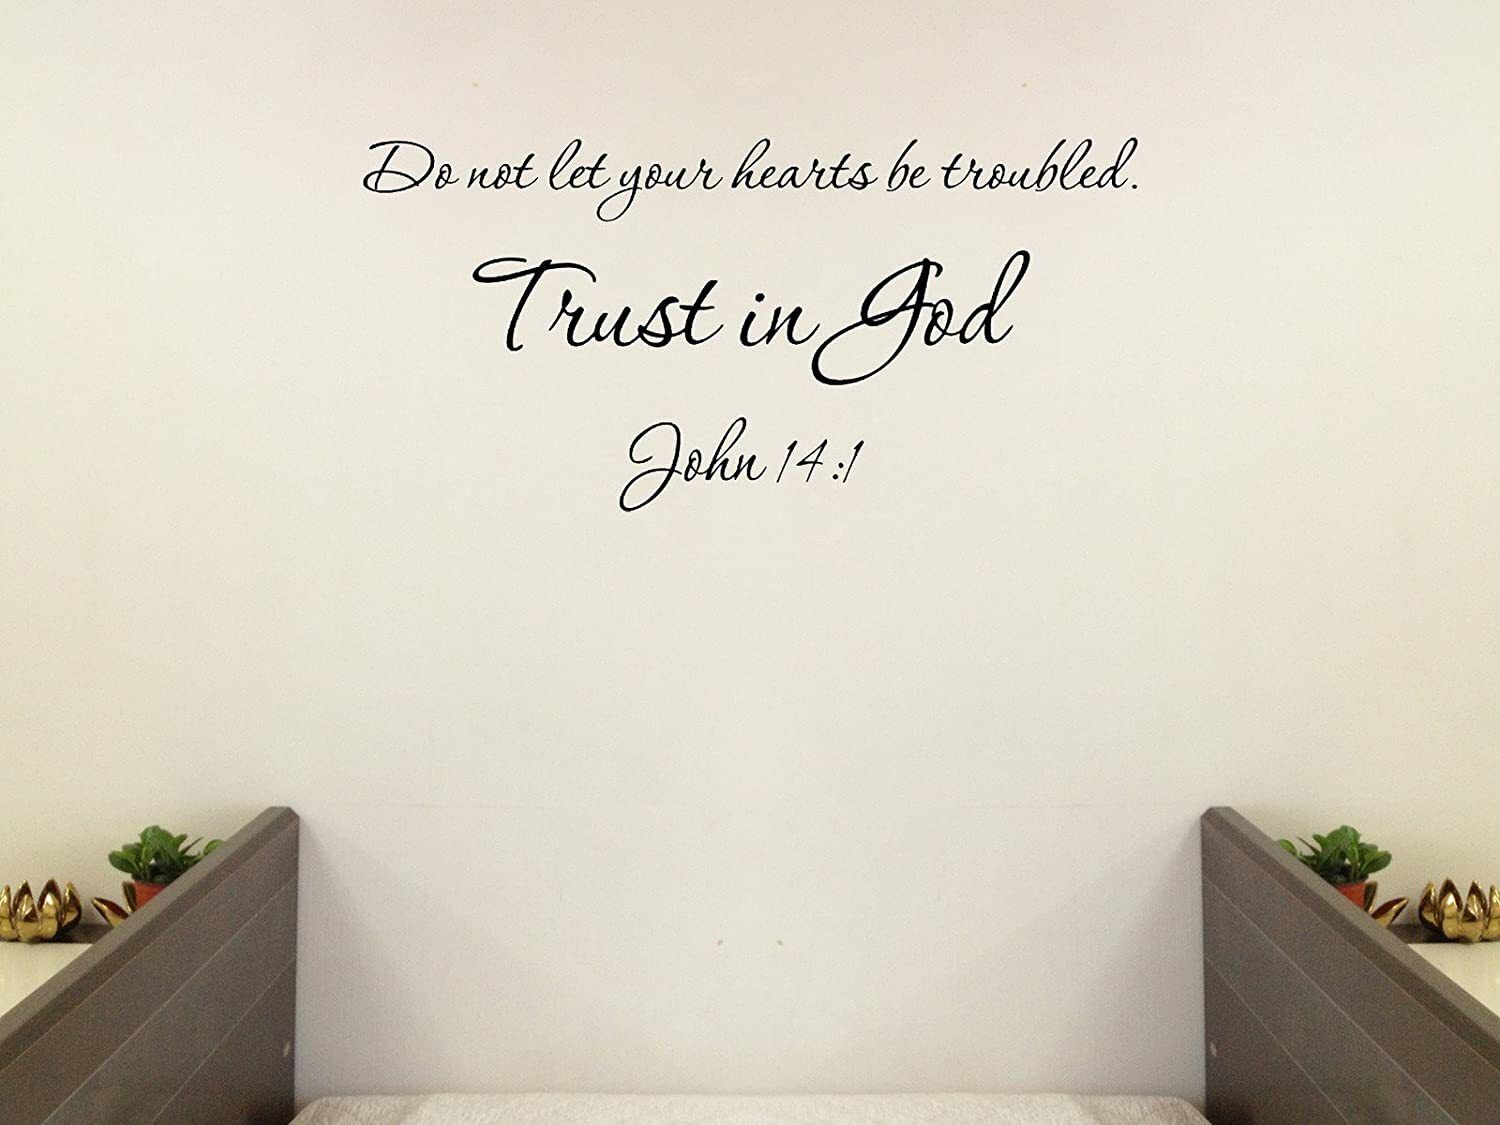 Do not let your hearts be troubled.
Trust in God
John 14:1